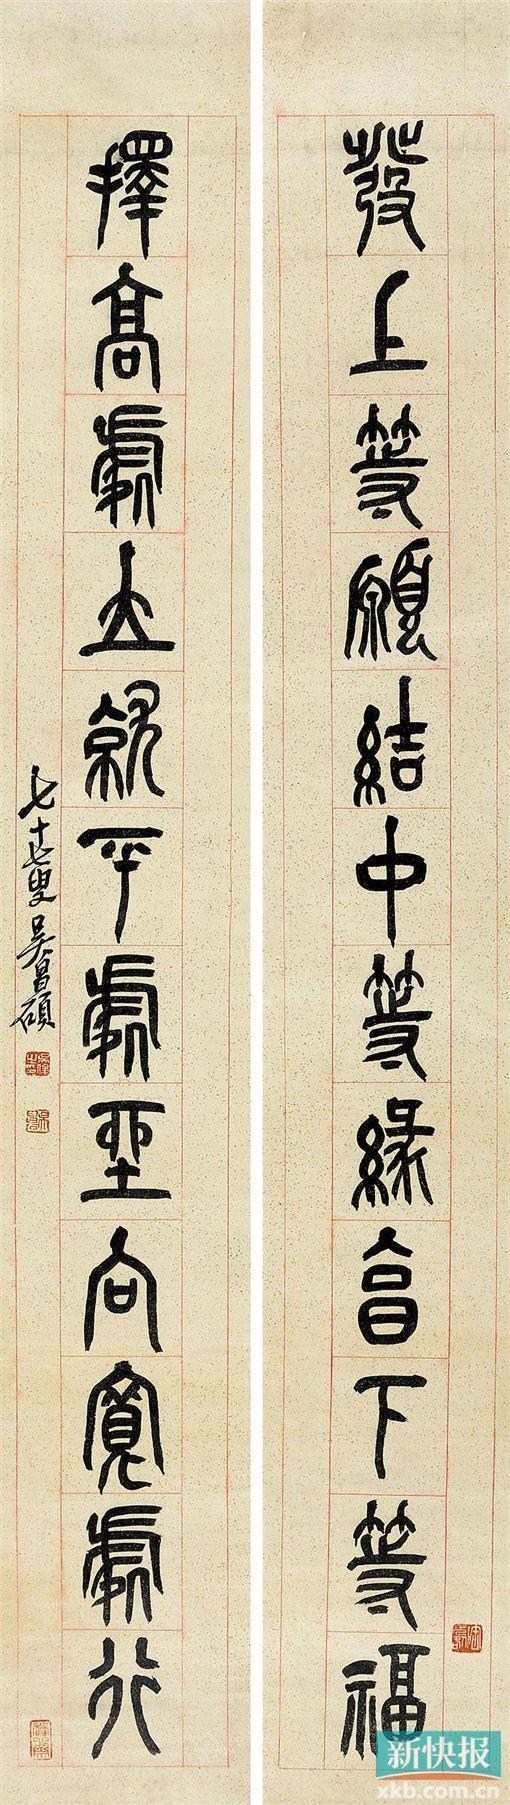 發上等願結中等緣享下等福
擇高處立就平處坐向寬處行
七十七叟吳昌碩
新快报
xkb.com.cn